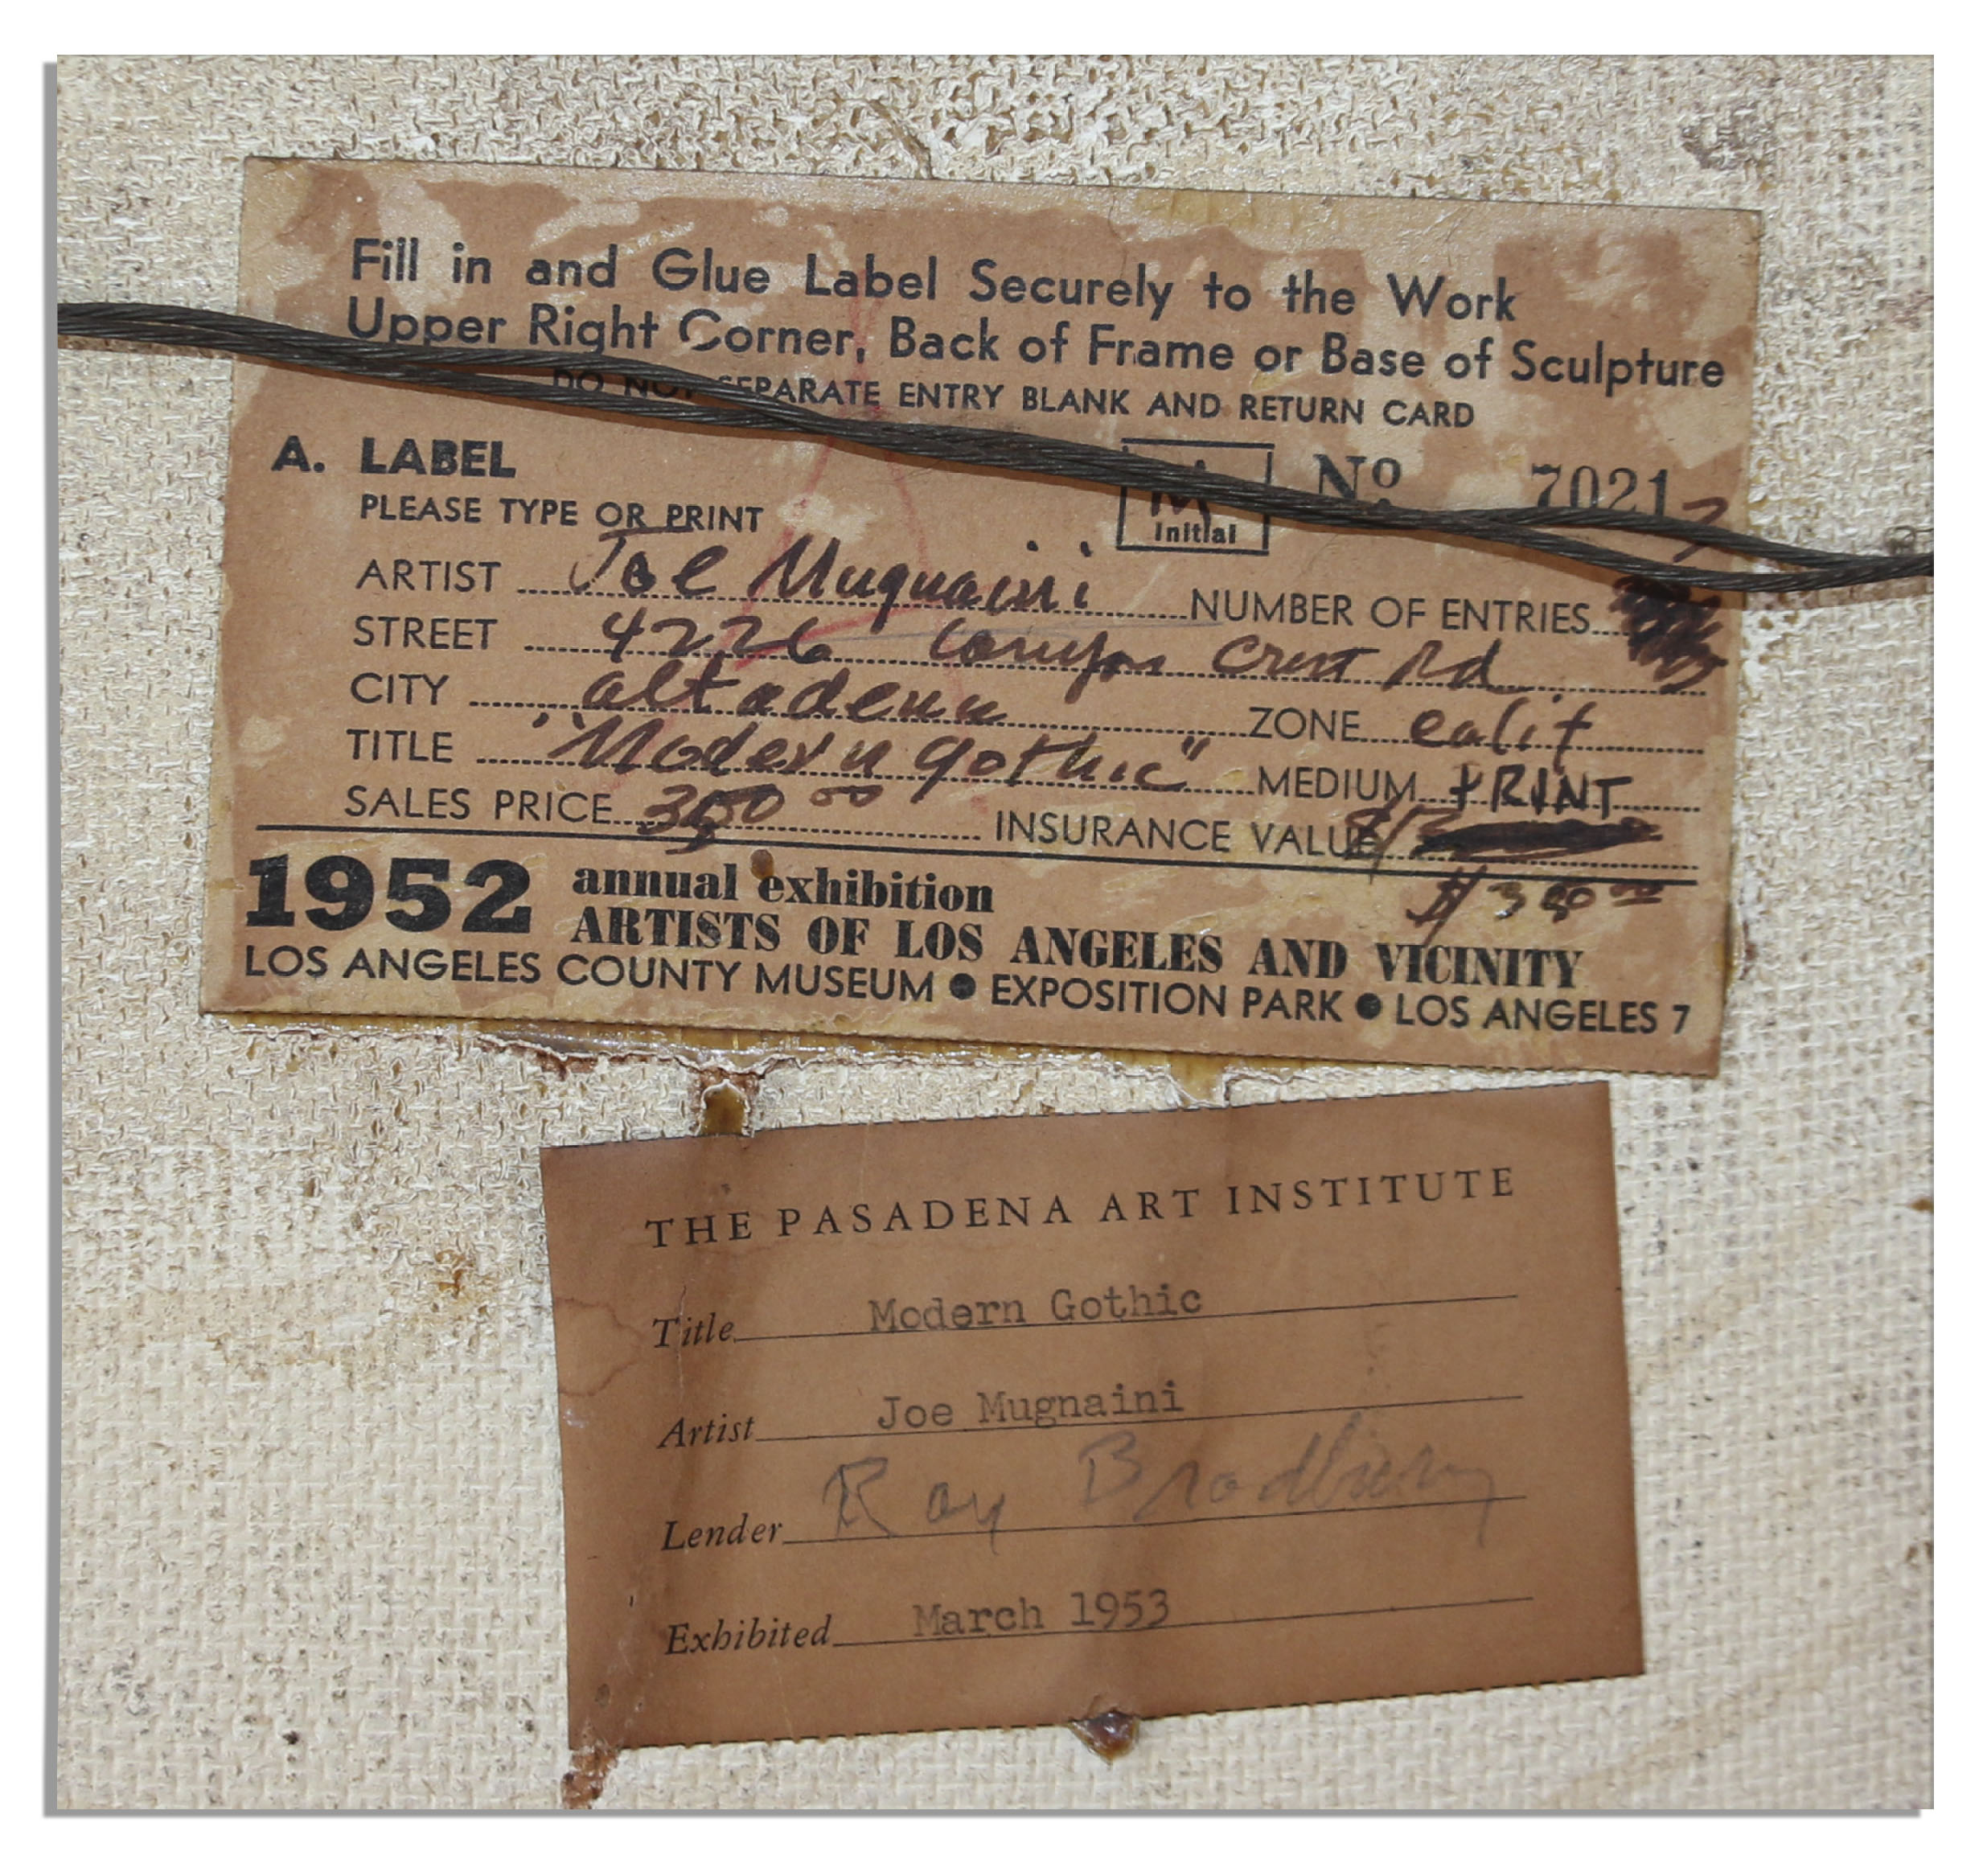 Fill in and Glue Label Securely to the Work
Upper Right Corner, Back of Frame or Base of Sculpture
DO NOT SEPARATE ENTRY BLANK AND RETURN CARD
A. LABEL
PLEASE TYPE OR PRINT
M
Initial
No 7021
ARTIST Joe Mugnaini NUMBER OF ENTRIES
STREET 4226 Crest Rd
CITY altadena ZONE calif
TITLE "Modern Gothic" MEDIUM PRINT
SALES PRICE INSURANCE VALUE
1952 annual exhibition
ARTISTS OF LOS ANGELES AND VICINITY
LOS ANGELES COUNTY MUSEUM ● EXPOSITION PARK ● LOS ANGELES 7
THE PASADENA ART INSTITUTE
Title Modern Gothic
Artist Joe Mugnaini
Lender Ray Bradbury
Exhibited March 1953